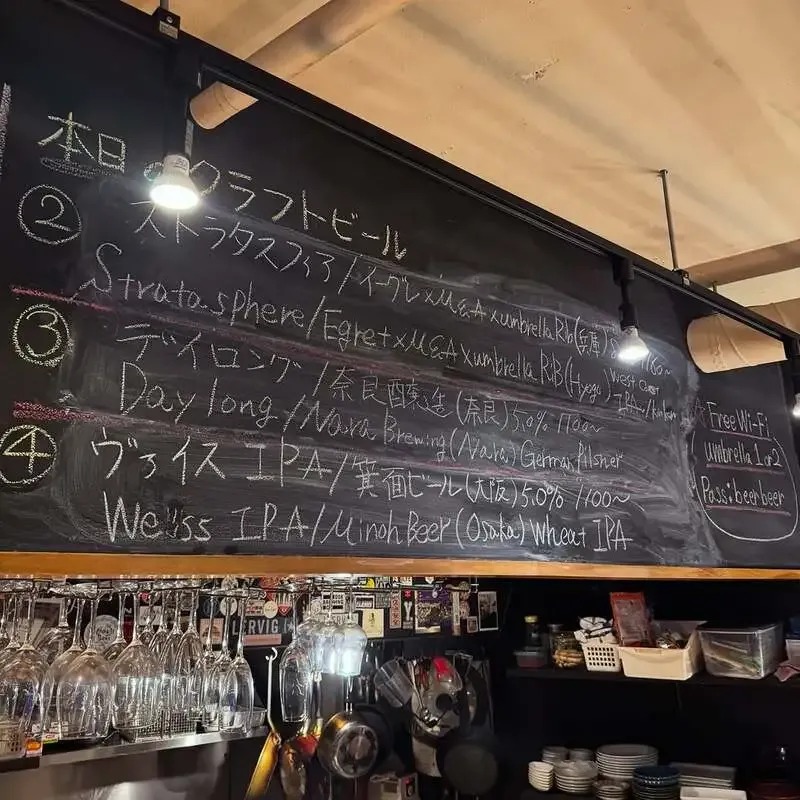 本日のクラフトビール
② ストラタスフィア/イーグレxM&Axumbrella RB(兵庫)
Stratasphere/EgretxM&Axumbrella RB(Hyogo) West Coast IPA
③ デイロング/奈良醸造(奈良)5.0% 1100~
Day long/Nara Brewing(Nara)German Pilsner
④ ヴァイスIPA/箕面ビール(大阪)5.0% 1100~
Weiss IPA/Minoh Beer(Osaka)Wheat IPA
Free Wi-Fi
umbrella 1 or 2
Pass:beerbeer
LERVIG